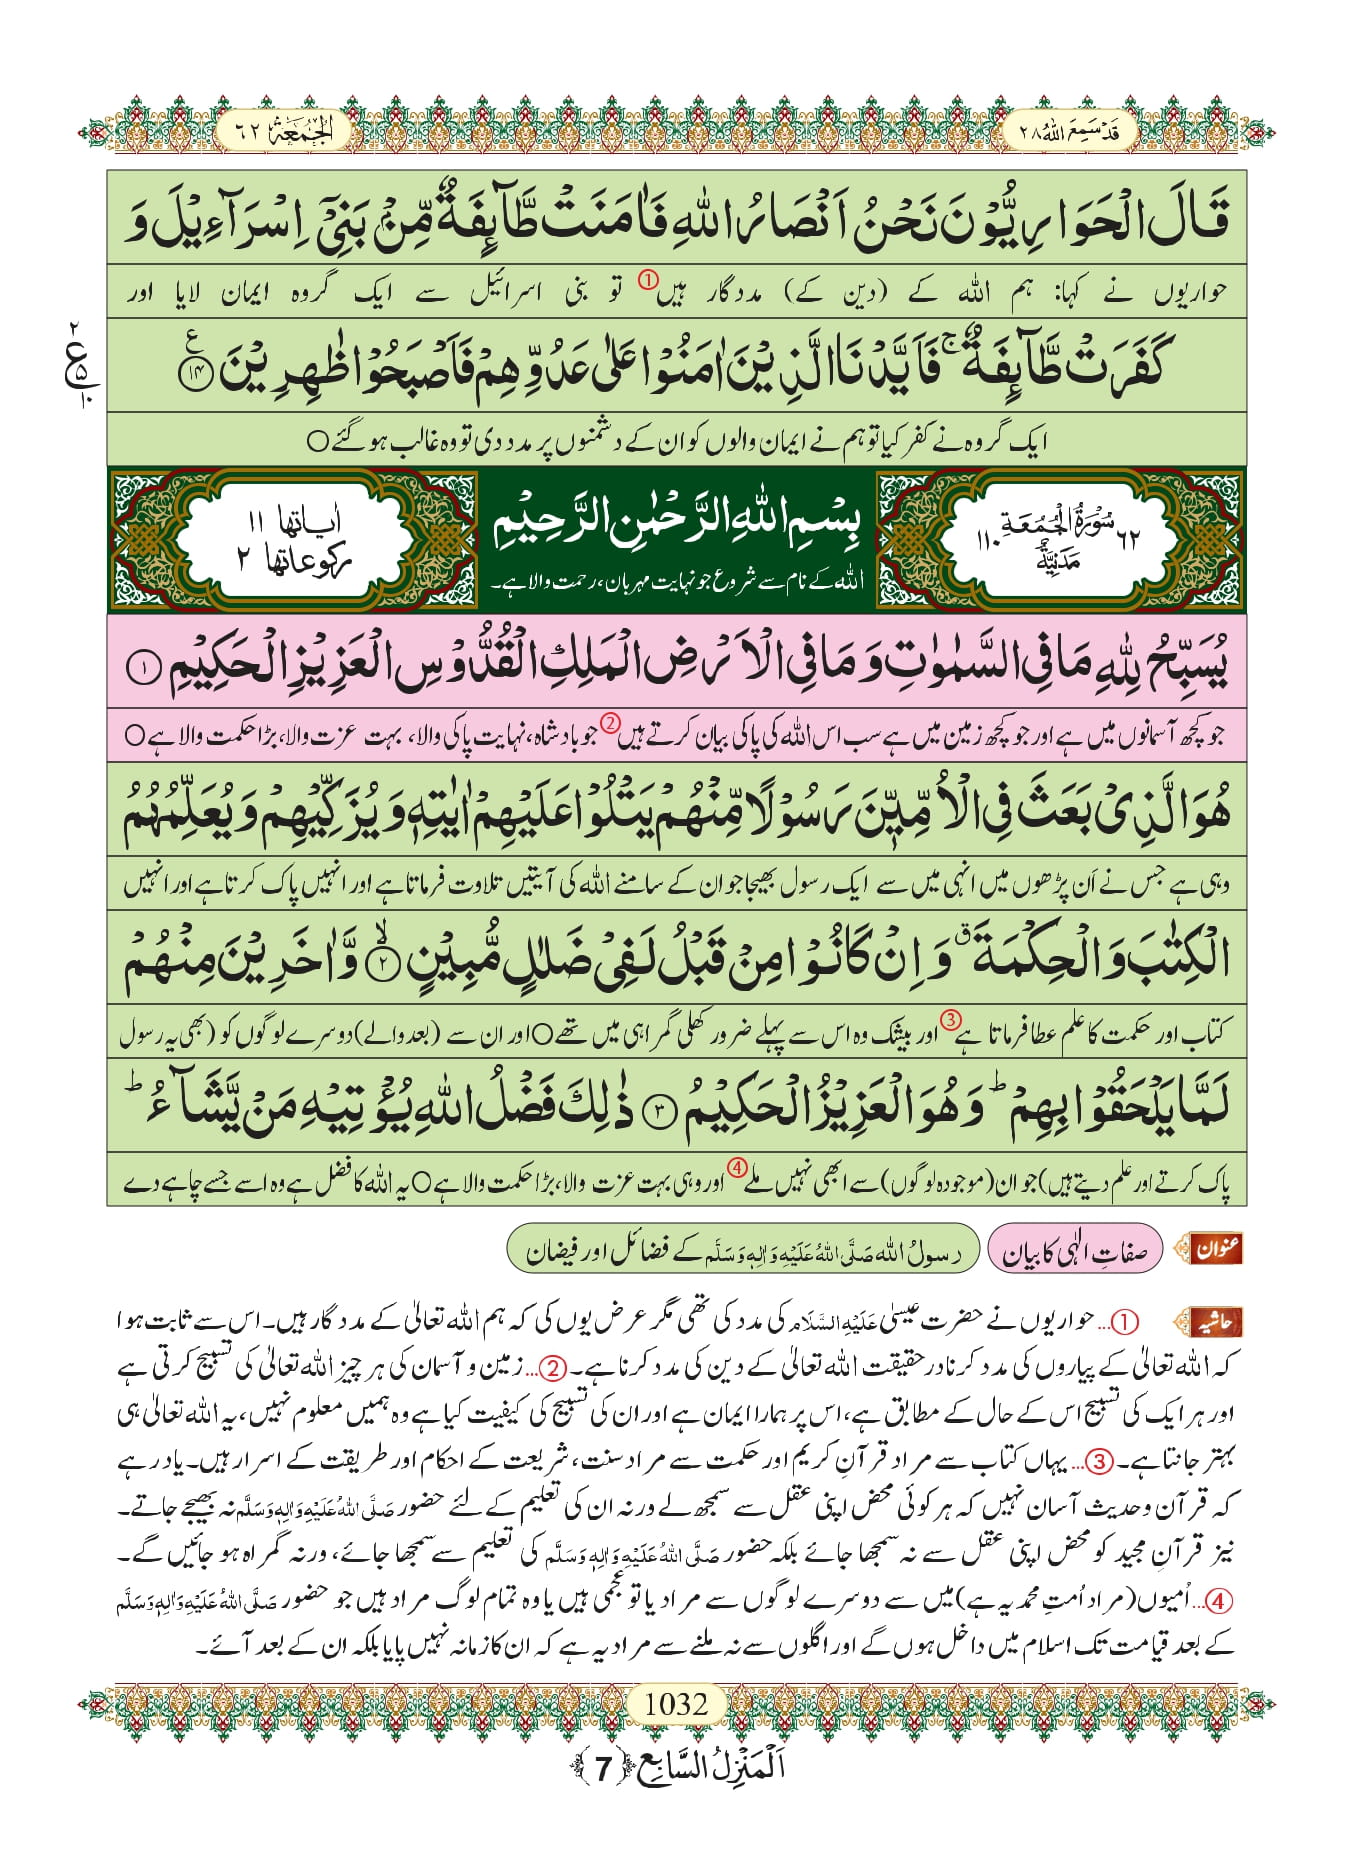 قَدۡ سَمِعَ اللّٰهُ ۲۸
اَلۡجُمُعَة ۶۲
قَالَ الۡحَوَارِیُّوۡنَ نَحۡنُ اَنۡصَارُ اللّٰهِ فَاٰمَنَتۡ طَّآئِفَةٌ مِّنۡۢ بَنِیۡۤ اِسۡرَآءِیۡلَ وَ
حواریوں نے کہا: ہم اللہ کے (دین کے) مددگار ہیں① تو بنی اسرائیل سے ایک گروہ ایمان لایا اور
كَفَرَتۡ طَّآئِفَةٌ ۚ فَاَیَّدۡنَا الَّذِیۡنَ اٰمَنُوۡا عَلٰی عَدُوِّهِمۡ فَاَصۡبَحُوۡا ظٰهِرِیۡنَ ﴿۱۴﴾ ع
۲
ع
۵
۱۰
ایک گروہ نے کفر کیا تو ہم نے ایمان والوں کو ان کے دشمنوں پر مدد دی تو وہ غالب ہوگئے○
۶۲ سُوۡرَةُ الۡجُمُعَةِ ۱۱۰
مَدَنِیَّةٌ
بِسۡمِ اللّٰهِ الرَّحۡمٰنِ الرَّحِیۡمِ
اللہ کے نام سے شروع جو نہایت مہربان، رحمت والا ہے۔
اٰیاتها ۱۱
رکوعاتها ۲
یُسَبِّحُ لِلّٰهِ مَا فِی السَّمٰوٰتِ وَ مَا فِی الۡاَرۡضِ الۡمَلِكِ الۡقُدُّوۡسِ الۡعَزِیۡزِ الۡحَكِیۡمِ ﴿۱﴾
جو کچھ آسمانوں میں ہے اور جو کچھ زمین میں ہے سب اس اللہ کی پاکی بیان کرتے ہیں② جو بادشاہ، نہایت پاکی والا، بہت عزت والا، بڑا حکمت والا ہے○
هُوَ الَّذِیۡ بَعَثَ فِی الۡاُمِّیّٖنَ رَسُوۡلًا مِّنۡهُمۡ یَتۡلُوۡا عَلَیۡهِمۡ اٰیٰتِهٖ وَ یُزَكِّیۡهِمۡ وَ یُعَلِّمُهُمُ
وہی ہے جس نے اَن پڑھوں میں انہی میں سے ایک رسول بھیجا جو ان کے سامنے اللہ کی آیتیں تلاوت فرماتا ہے اور انہیں پاک کرتا ہے اور انہیں
الۡكِتٰبَ وَ الۡحِكۡمَةَ ٭ۗ وَ اِنۡ كَانُوۡا مِنۡ قَبۡلُ لَفِیۡ ضَلٰلٍ مُّبِیۡنٍ ۙ﴿۲﴾ وَّ اٰخَرِیۡنَ مِنۡهُمۡ
کتاب اور حکمت کا علم عطا فرماتا ہے③ اور بیشک وہ اس سے پہلے ضرور کھلی گمراہی میں تھے○ اور ان سے (بعد والے) دوسرے لوگوں کو (بھی یہ رسول
لَمَّا یَلۡحَقُوۡا بِهِمۡ ؕ وَ هُوَ الۡعَزِیۡزُ الۡحَكِیۡمُ ﴿۳﴾ ذٰلِكَ فَضۡلُ اللّٰهِ یُؤۡتِیۡهِ مَنۡ یَّشَآءُ ؕ
پاک کرتے اور علم دیتے ہیں) جو ان (موجودہ لوگوں) سے ابھی نہیں ملے④ اور وہی بہت عزت والا، بڑا حکمت والا ہے○ یہ اللہ کا فضل ہے وہ اسے جسے چاہے دے
عنوان صفاتِ الٰہی کا بیان رسولُ اللہ صَلَّی اللہُ عَلَیْہِ وَاٰلِہٖ وَسَلَّم کے فضائل اور فیضان
حاشیہ ①... حواریوں نے حضرت عیسیٰ عَلَیْہِ السَّلَام کی مدد کی تھی مگر عرض یوں کی کہ ہم اللہ تعالیٰ کے مددگار ہیں۔ اس سے ثابت ہوا
کہ اللہ تعالیٰ کے پیاروں کی مدد کرنا درحقیقت اللہ تعالیٰ کے دین کی مدد کرنا ہے۔ ②... زمین و آسمان کی ہر چیز اللہ تعالیٰ کی تسبیح کرتی ہے
اور ہر ایک کی تسبیح اس کے حال کے مطابق ہے، اس پر ہمارا ایمان ہے اور ان کی تسبیح کی کیفیت کیا ہے وہ ہمیں معلوم نہیں، یہ اللہ تعالیٰ ہی
بہتر جانتا ہے۔ ③... یہاں کتاب سے مراد قرآنِ کریم اور حکمت سے مراد سنت، شریعت کے احکام اور طریقت کے اسرار ہیں۔ یاد رہے
کہ قرآن و حدیث آسان نہیں کہ ہر کوئی محض اپنی عقل سے سمجھ لے ورنہ ان کی تعلیم کے لئے حضور صَلَّی اللہُ عَلَیْہِ وَاٰلِہٖ وَسَلَّم نہ بھیجے جاتے۔
نیز قرآنِ مجید کو محض اپنی عقل سے نہ سمجھا جائے بلکہ حضور صَلَّی اللہُ عَلَیْہِ وَاٰلِہٖ وَسَلَّم کی تعلیم سے سمجھا جائے، ورنہ گمراہ ہو جائیں گے۔
④... اُمیوں (مراد اُمتِ محمدیہ ہے) میں سے دوسرے لوگوں سے مراد یا تو عجمی ہیں یا وہ تمام لوگ مراد ہیں جو حضور صَلَّی اللہُ عَلَیْہِ وَاٰلِہٖ وَسَلَّم
کے بعد قیامت تک اسلام میں داخل ہوں گے اور اگلوں سے نہ ملنے سے مراد یہ ہے کہ ان کا زمانہ نہیں پایا بلکہ ان کے بعد آئے۔
1032
اَلۡمَنۡزِلُ السَّابِع ﴿7﴾